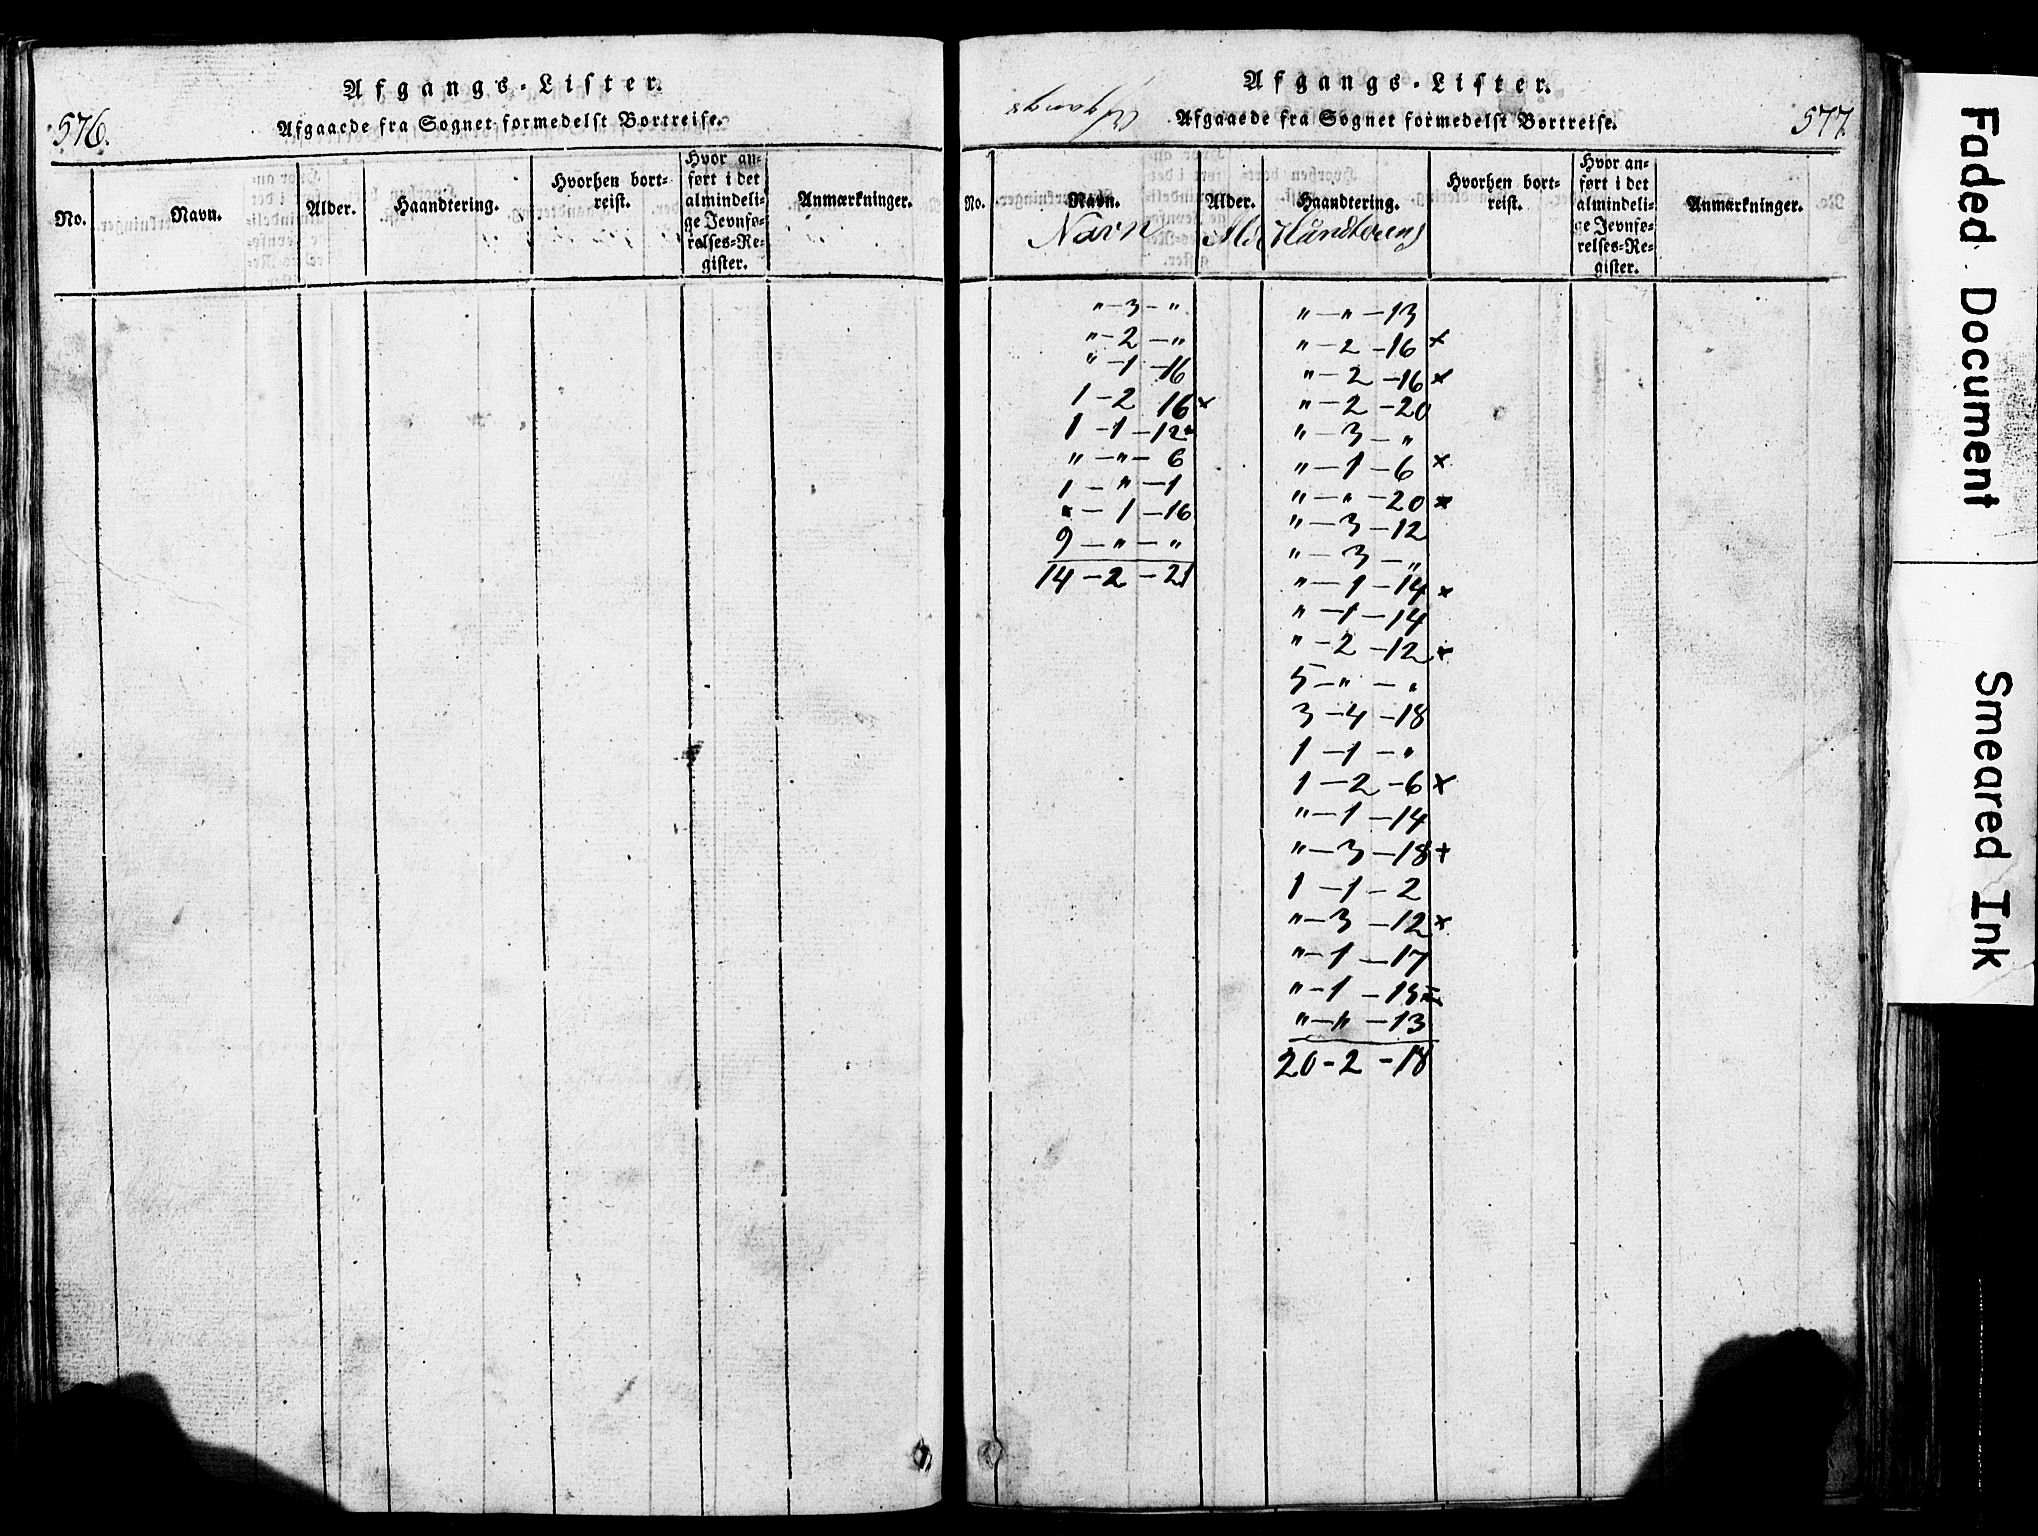 Afgangs-Lister.
576.
Afgaaede fra Sognet formedelst Bortreise.
No.
Navn.
Alder.
Haandtering.
Hvorhen bort=
reist.
Hvor an=
ført i det
almindeli=
ge Jevnfø=
relses=Re=
gister.
Anmærkninger.
Afgangs-Lister.
Afgangs
Afgaaede fra Sognet formedelst Bortreise.
577.
No.
Navn.
Alder.
Haandtering.
Hvorhen bort=
reist.
Hvor an=
ført i det
almindeli=
ge Jevnfø=
relses=Re=
gister.
Anmærkninger.
Navn
Håndtering
" - 3 - "
" - 2 - "
" - 1 - 16
1 - 2 16 x
1 - 1 - 12
" - " - 6
1 - " - 1
" - 1 - 16
9 - " - "
14 - 2 - 21
" - " - 13
" - 2 - 16 x
" - 2 - 16 x
" - 2 - 20
" - 3 - "
" - 1 - 6 x
" - " - 20 x
" - 3 - 12
" - 3 - "
" - 1 - 14 x
" - 1 - 14
" - 2 - 12 x
5 - " - "
3 - 4 - 18
1 - 1 - "
1 - 2 - 6 x
" - 1 - 14
" - 3 - 18 +
1 - 1 - 2
" - 3 - 12 x
" - 1 - 17
" - 1 - 15 x
" - " - 13
20 - 2 - 18
Faded Document
Smeared Ink